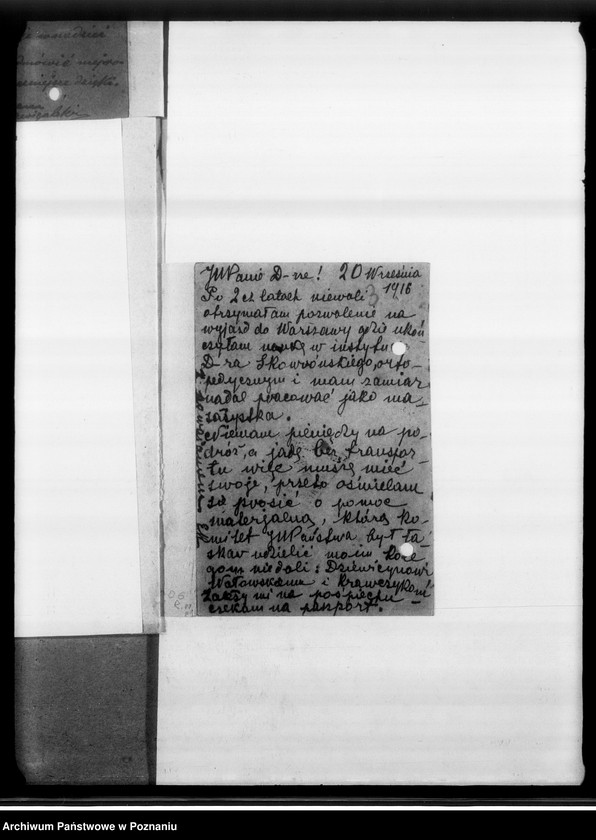 JWPanie D-rze! 20 Września
1916
Po 2ch latach niewoli
otrzymałam pozwolenie na
wyjazd do Warszawy gdzie ukoń
czyłam naukę w instytu
D-ra Skowrońskiego, orto-
pedycznym i mam zamiar
nadal pracować jako ma-
sażystka.
Niemam pieniędzy na po-
dróż, a jadę bez transpor-
tu więc muszę mieć
swoje, przeto ośmielam
się prosić o pomoc
materjalną, którą ko-
mitet JWPaństwa był ła-
skaw udzielić moim kole-
gom niedoli:
i Krawczykowi
Zależy mi na pośpiechu
czekam na paszport.
Archiwum Państwowe w Poznaniu